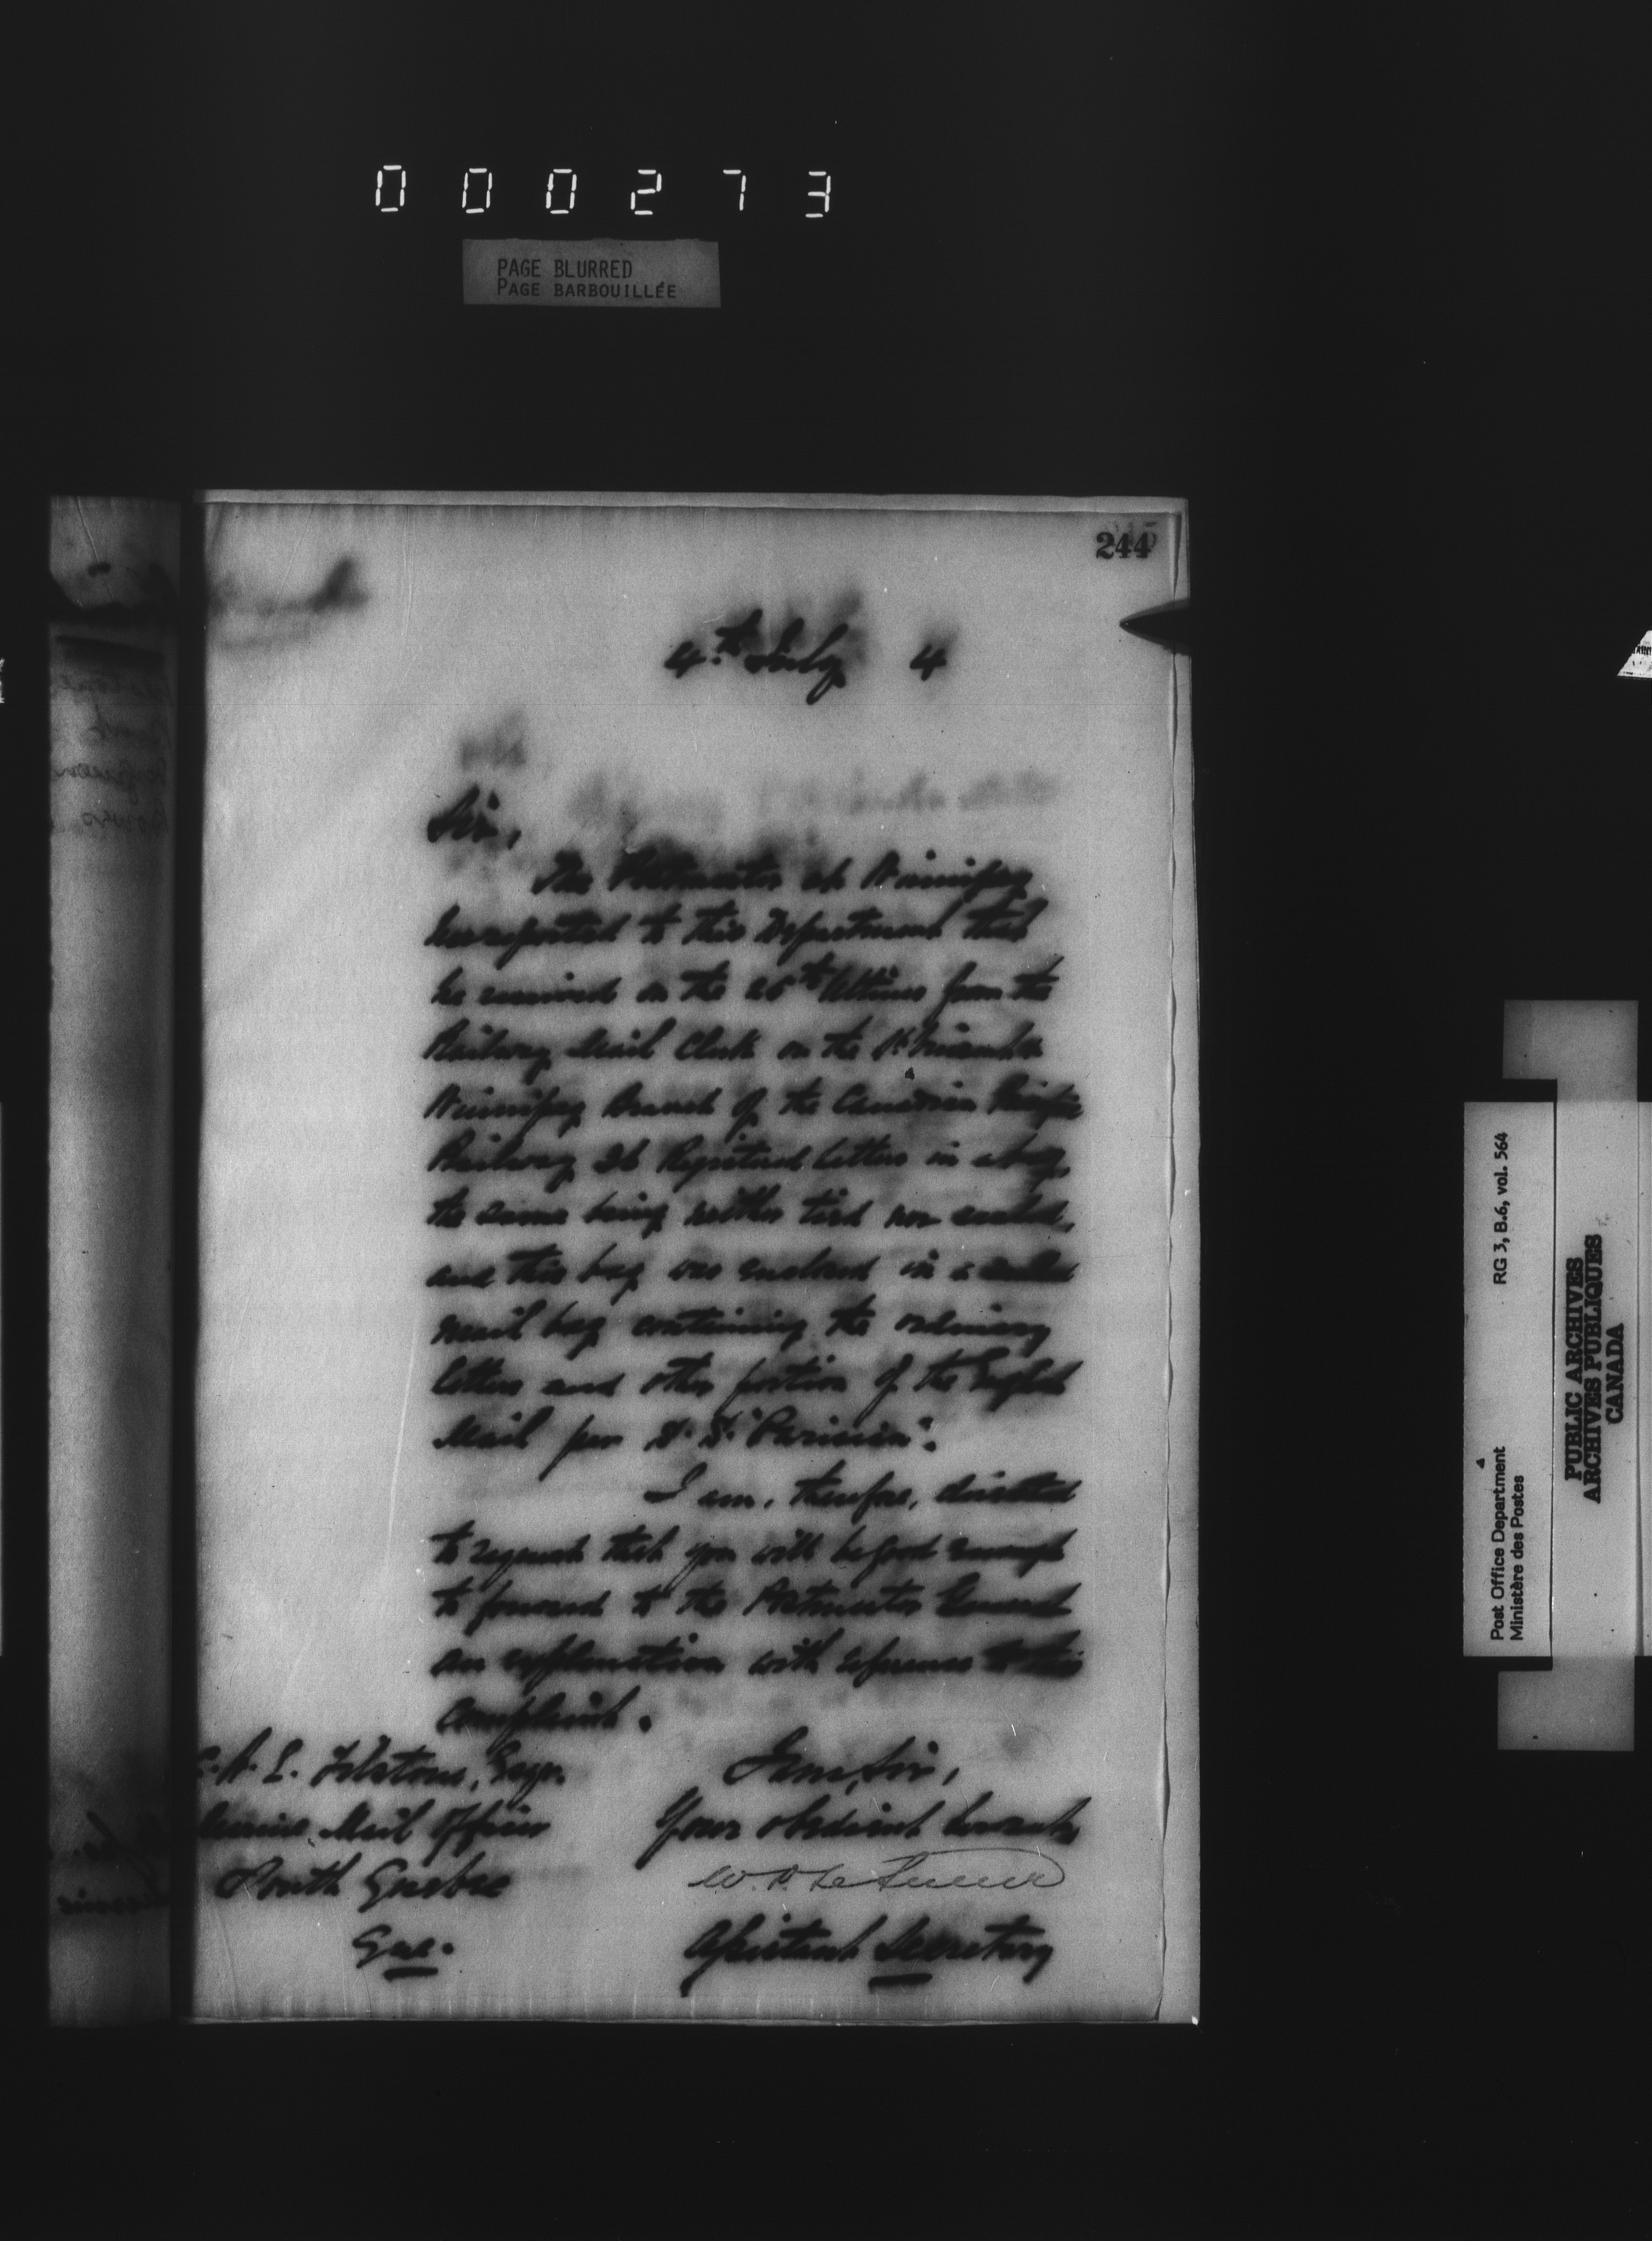 000273
PAGE BLURRED
PAGE BARBOUILLÉE
244
4th July 4
Sir,
The Postmaster at Winnipeg
has reported to this Department that
he received on the 26th Ultimo from the
Railway Mail Clerk on the St Vincent &
Winnipeg Branch of the Canadian Pacific
Railway 26 Registered letters in a bag,
the same being neither tied nor sealed,
and this bag was enclosed in a sealed
mail bag containing the ordinary
letters and other portion of the English
Mail per S.S. "Parisian".
I am, therefore, directed
to request that you will be good enough
to forward to the Postmaster General
an explanation with reference to this
complaint.
I am, Sir,
Your obedient Servant
W. D. LeSueur
Assistant Secretary
Esqr.
Marine Mail Officer
South Quebec
Que.
Post Office Department RG 3, B.6, vol. 564
Ministère des Postes
PUBLIC ARCHIVES
ARCHIVES PUBLIQUES
CANADA